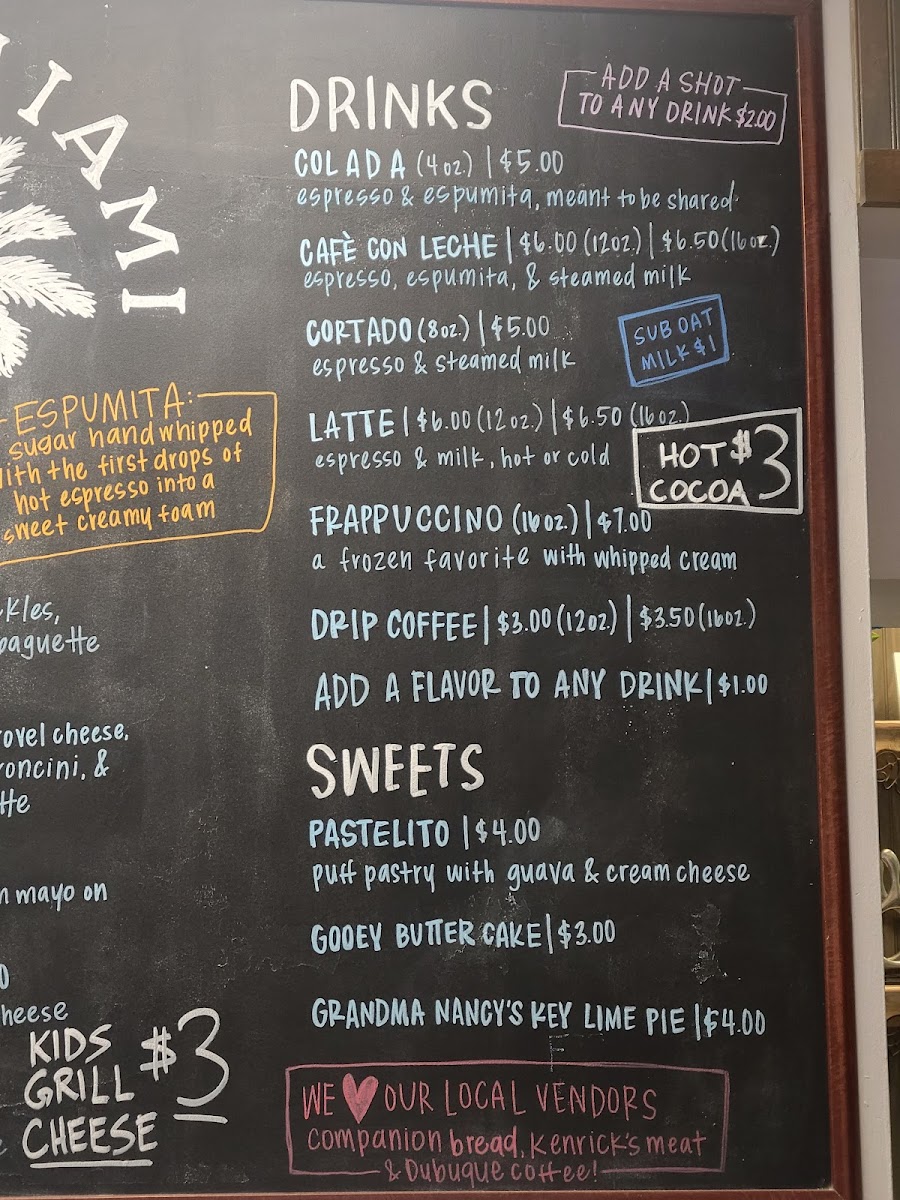 IAMI
ESPUMITA:
sugar hand whipped
with the first drops of
hot espresso into a
sweet creamy foam
baguette
cheese,
&
mayo on
KIDS
GRILL
CHEESE
$3
DRINKS
ADD A SHOT
TO ANY DRINK $2.00
COLADA (4oz.) | $5.00
espresso & espumita, meant to be shared
CAFÈ CON LECHE | $6.00 (12oz.) | $6.50 (16oz.)
espresso, espumita, & steamed milk
CORTADO (8oz.) | $5.00
espresso & steamed milk
SUB OAT
MILK $1
LATTE | $6.00 (12oz.) | $6.50 (16oz.)
espresso & milk, hot or cold
HOT $3
COCOA
FRAPPUCCINO (16oz.) | $7.00
a frozen favorite with whipped cream
DRIP COFFEE | $3.00 (12oz.) | $3.50 (16oz.)
ADD A FLAVOR TO ANY DRINK | $1.00
SWEETS
PASTELITO | $4.00
puff pastry with guava & cream cheese
GOOEY BUTTER CAKE | $3.00
GRANDMA NANCY'S KEY LIME PIE | $4.00
WE ♥ OUR LOCAL VENDORS
companion bread, Kenrick's meat
& Dubuque coffee!